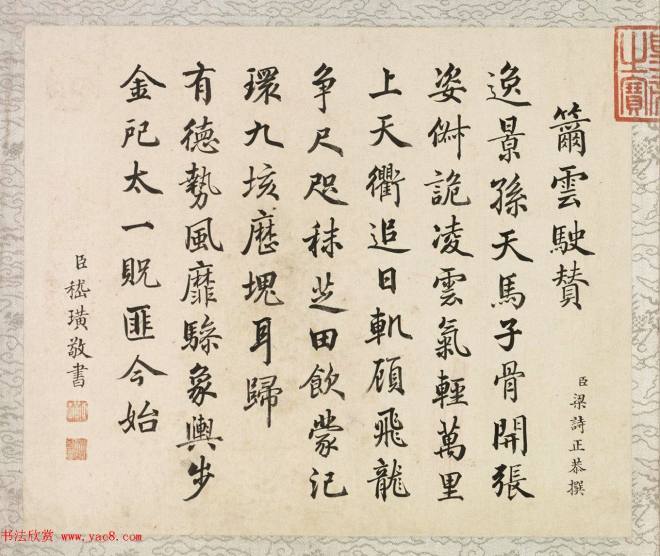 籋雲駛贊
臣梁詩正恭撰
逸景孫天馬子骨開張
姿俶詭凌雲氣輕萬里
上天衢追日軌顧飛龍
争尺咫秣芝田飲蒙汜
環九垓歷塊耳歸
有德勢風靡驂象輿步
金戺太一貺匪今始
臣嵇璜敬書
之寶
书法欣赏 www.yac8.com